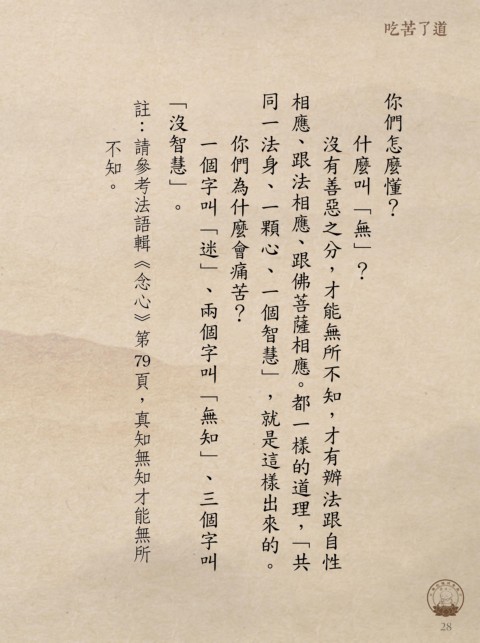 吃苦了道
你們怎麼懂？
什麼叫「無」？
沒有善惡之分，才能無所不知，才有辦法跟自性
相應、跟法相應、跟佛菩薩相應。都一樣的道理，「共
同一法身、一顆心、一個智慧」，就是這樣出來的。
你們為什麼會痛苦？
一個字叫「迷」、兩個字叫「無知」、三個字叫
「沒智慧」。
註：請參考法語輯《念心》第79頁，真知無知才能無所
不知。
28